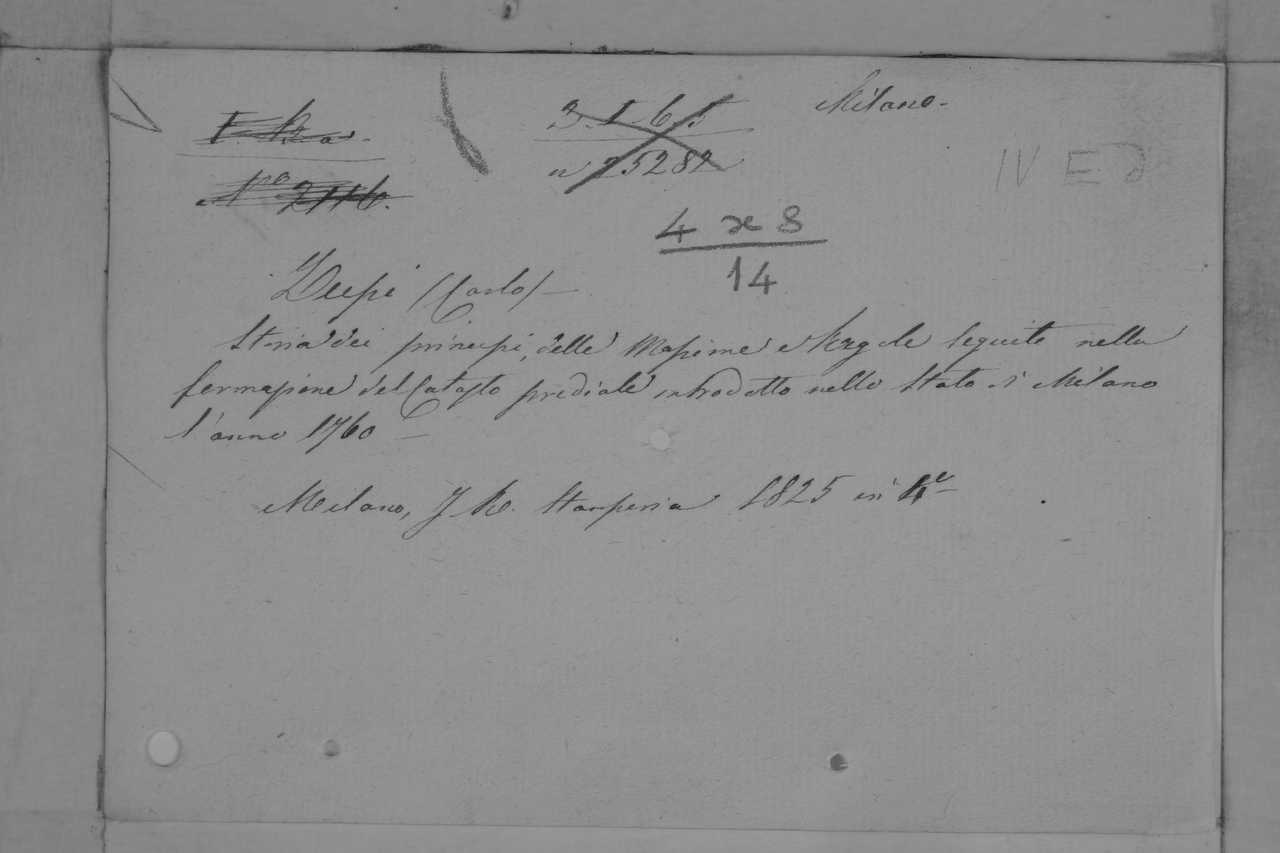 Milano.
2. I. 6. 5
n 25282
IV E
No 2116.
4 x 8
14
Lupi (Carlo) —
Storia dei principj, delle Massime e Regole seguite nella
formazione del Catasto prediale introdotto nello Stato di Milano
l'anno 1760 —
Milano, I. R. Stamperia 1825 in 4°